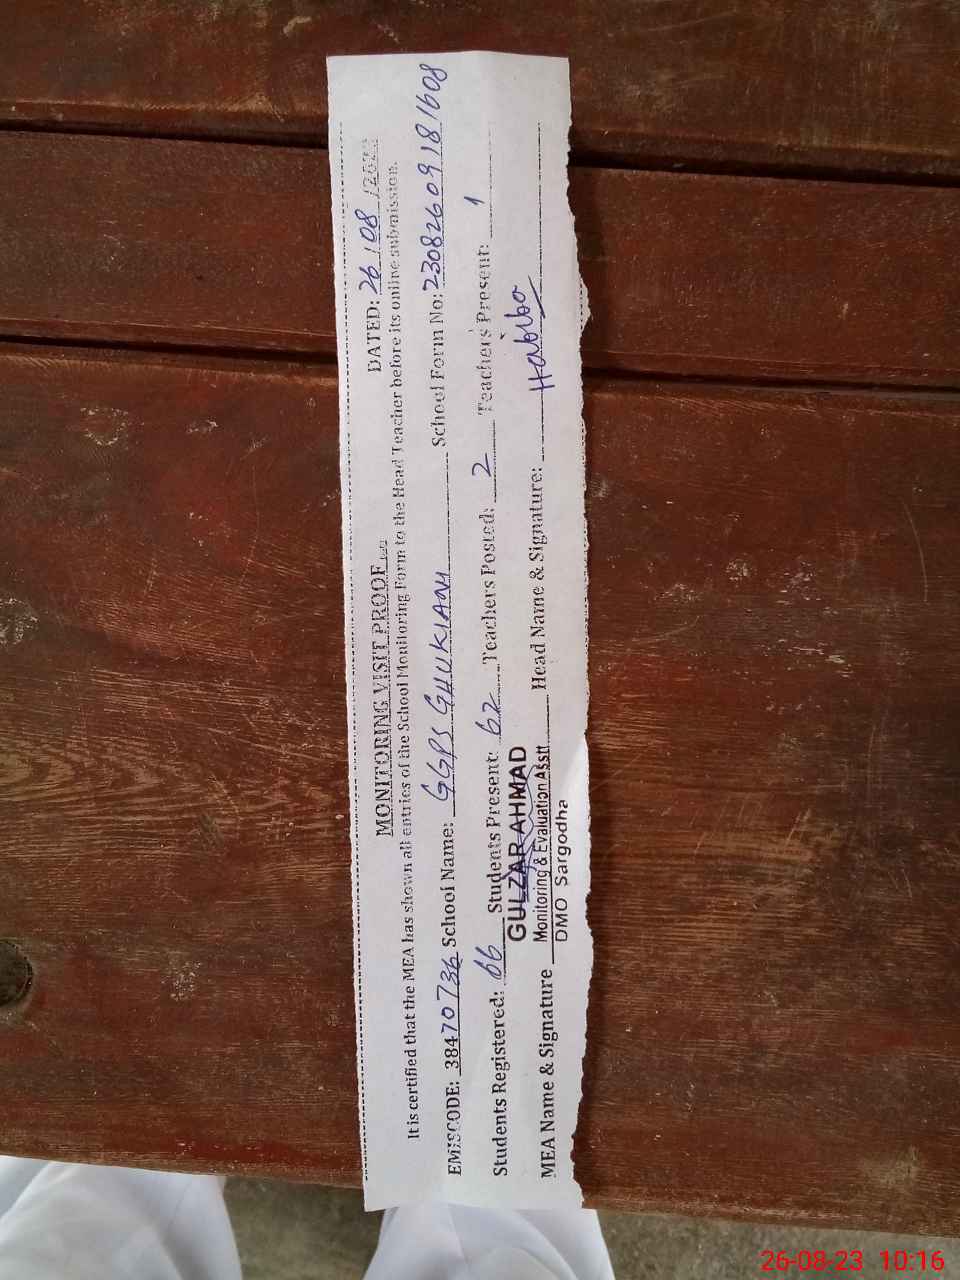 MONITORING VISIT PROOF
DATED: 26/08/2023
It is certified that the MEA has shown all entries of the School Monitoring Form to the Head Teacher before its online submission.
EMISCODE: 38470736 School Name: GGPS GHUKIANH School Form No: 23082609181608
Students Registered: 66 Students Present: 62 Teachers Posted: 2 Teachers Present: 1
GULZAR AHMAD
Monitoring & Evaluation Asstt
DMO Sargodha
MEA Name & Signature Head Name & Signature:
26-08-23 10:16